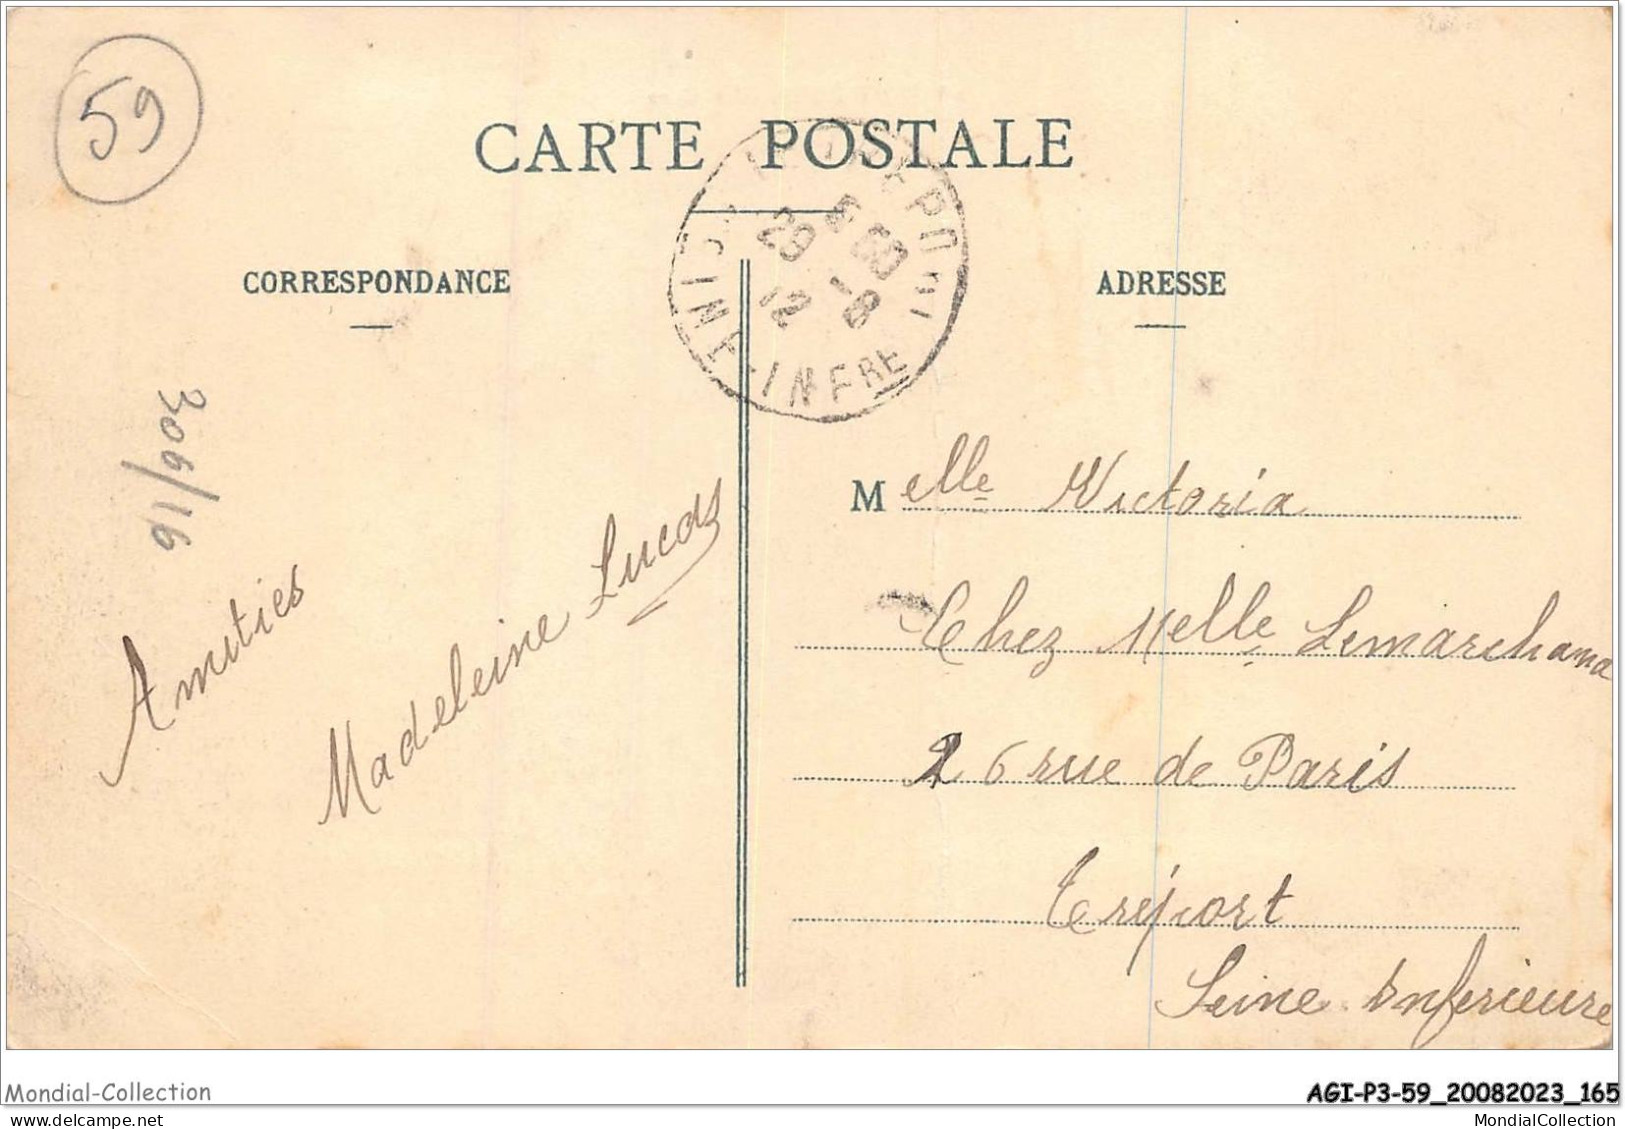 59
CARTE POSTALE
CORRESPONDANCE
ADRESSE
29
12
SEINE-INFRE
306/16
Amitiés
Madeleine Lucas
Melle Victoria
Chez Melle Lemarchand
26 rue de Paris
Tréport
Seine Inferieure
Mondial-Collection
AGI-P3-59_20082023_165
MondialCollection